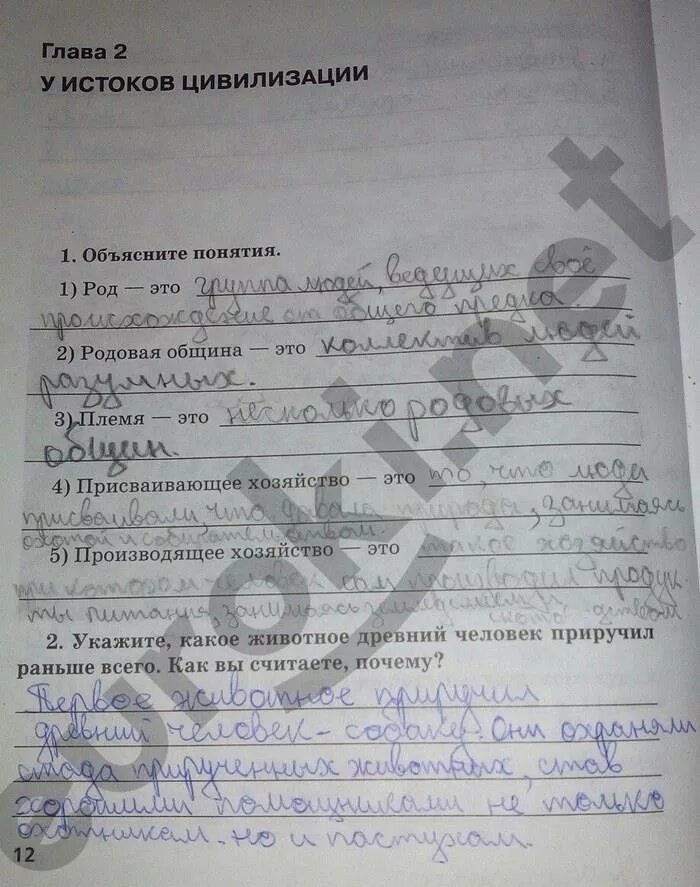 Глава 2
У ИСТОКОВ ЦИВИЛИЗАЦИИ
1. Объясните понятия.
1) Род — это группа людей, ведущих своё
происхождение от общего предка.
2) Родовая община — это коллектив людей
разумных.
3) Племя — это несколько родовых
общин.
4) Присваивающее хозяйство — это то, что люди
присваивали, что давала природа, занимаясь
охотой и собирательством.
5) Производящее хозяйство — это такое хозяйство
при котором человек сам производил продук
ты питания, занимаясь земледелием и
скотоводством
2. Укажите, какое животное древний человек приручил
раньше всего. Как вы считаете, почему?
Первое животное приручил
древний человек – собаку. Они охраняли
стада прирученных животных, став
хорошими помощниками не только
охотникам. но и пастухам.
12
euroki.net